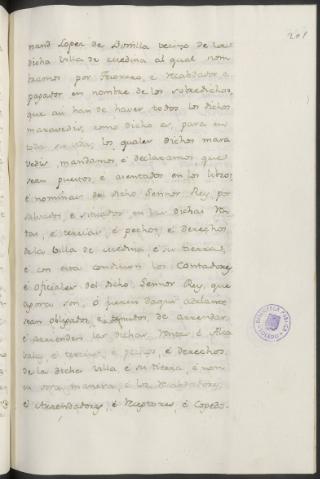 201
nand Lopez de Dueñlla vecino de la
dicha villa de medina al qual nom
bramos por Thesorero, é Recabdador, é
pagador en nombre de los sobredichos,
que asi han de haver todos los dichos
maravedis, como dicho es, para en
toda su vida; los quales dichos mara
vedis, mandamos é declaramos que
sean puestos, é asentados en los libros
é nominas del dicho Señor Rey, por
salvados, é situados en las dichas Ren
tas, é tercias, é pechos, é derechos
de la Villa de medina, é su tierra,
é con esta condicion los Contadores
é oficiales del dicho Señor Rey, que
agora son, ó fueren daqui adelante
sean obligados, é de arrendar
é arrienden las dichas Rentas, é Alca
valas, é tercias, é pechos, é derechos
de la dicha Villa é su tierra, é non
en otra manera, é los Recabdadores,
é Arrendadores, é Receptores, é Cogedo-
BIBLIOTECA PUBLICA
TOLEDO